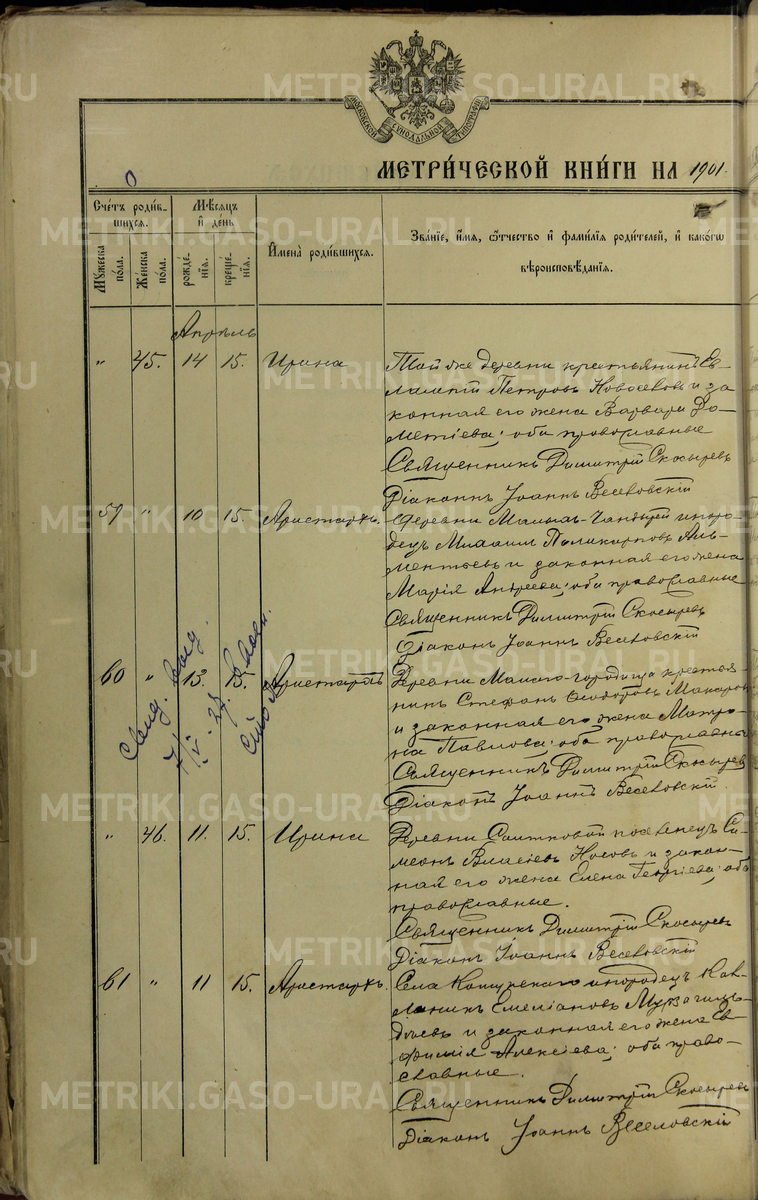 МОСКОВСКОЙ СѴНОДАЛЬНОЙ ТИПОГРАФІИ
МЕТРИ́ЧЕСКОЙ КНИ́ГИ НА 1901.
0
Сче́тъ роди́в-
шихся.
Му́жеска
по́ла.
Же́нска
по́ла.
Мѣ́сяцъ
и҆ де́нь
рожде́-
нїѧ.
креще́-
нїѧ.
И҆мена̀ роди́вшихся.
Зва́нїе, и҆́мѧ, ѻ҆́тчество и҆ фами́лїѧ роди́телей, и҆ како́гѡ
вѣроисповѣ́данїѧ.
Апрѣль
" 45. 14 15. Ирина
Той же деревни крестьянинъ Ев-
лампій Петровъ Новоселовъ и за
конная его жена Варвара До-
метіева; оба православные
Священникъ Димитрій Скосыревъ
Діаконъ Іоаннъ Веселовскій
59 " 10 15. Аристархъ.
Деревни Малыхъ- иноро-
децъ Поликарповъ
и законная его жена
Марія Андреева; оба православные
Священникъ Димитрій Скосыревъ
Діаконъ Іоаннъ Веселовскій
60 " 13. 15. Аристархъ
Деревни Малаго-городища крестья-
нинъ Стефанъ Ѳеодоровъ Макаровъ
и законная его жена Матро-
на Павлова; оба православные
Священникъ Димитрій Скосыревъ
Діаконъ Іоаннъ Веселовскій.
" 46. 11. 15. Ирина
Деревни Си-
меонъ Власіевъ Носовъ и закон-
ная его жена Елена Георгіева; оба
православные.
Священникъ Димитрій Скосыревъ
Діаконъ Іоаннъ Веселовскій
61 " 11 15. Аристархъ.
Села Кошукскаго инородецъ Кал-
линикъ Емеліановъ
и законная его жена Ев-
фимія Алексіева; оба право-
славные.
Священникъ Димитрій Скосыревъ
Діаконъ Іоаннъ Веселовскій
METRIKI.GASO-URAL.RU